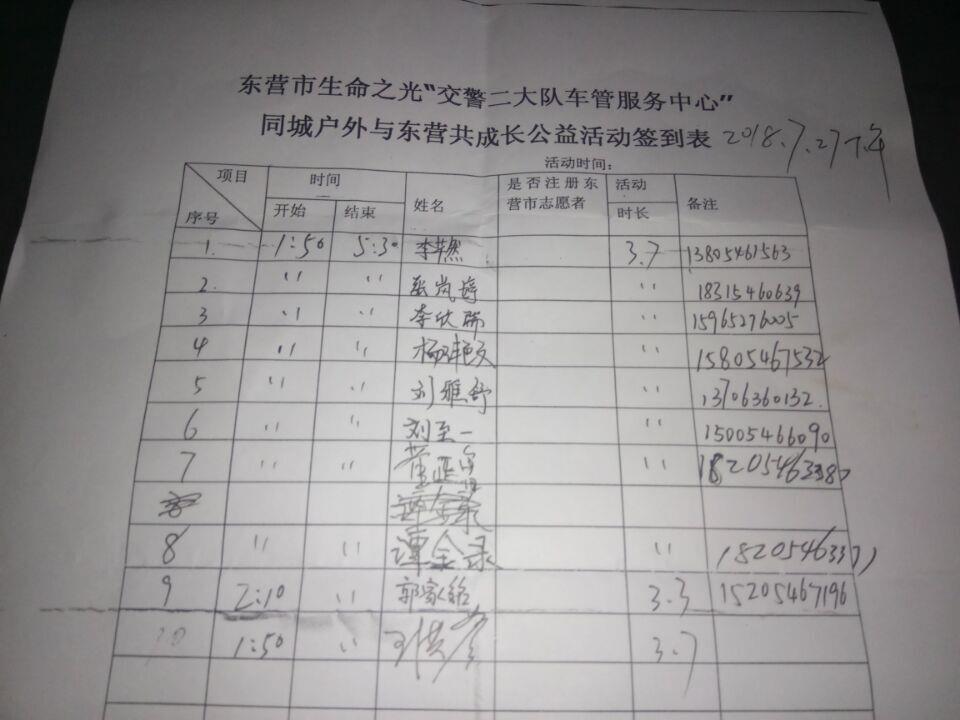 东营市生命之光“交警二大队车管服务中心”
同城户外与东营共成长公益活动签到表 2018.7.27下午
活动时间：
项目 序号 时间 开始 结束 姓名 是否注册东营市志愿者 活动时长 备注
1. 1:50 5:30 李 3.7 13805461563
2. 〃 〃 张岚婷 〃 18315460639
3 〃 〃 李欣瑞 〃 15965276005
4 〃 〃 杨 〃 15805467532
5 〃 〃 刘雅舒 〃 13706360132
6 〃 〃 刘至一 〃 15005466090
7 〃 〃 董 〃
8 〃 〃 谭金录 〃
9 2:10 〃 郭家铭 3.3 15205467196
10 1:50 〃 王 3.7